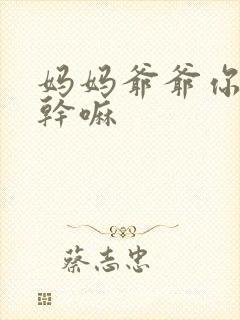 妈妈爷爷你
幹嘛
蔡志忠